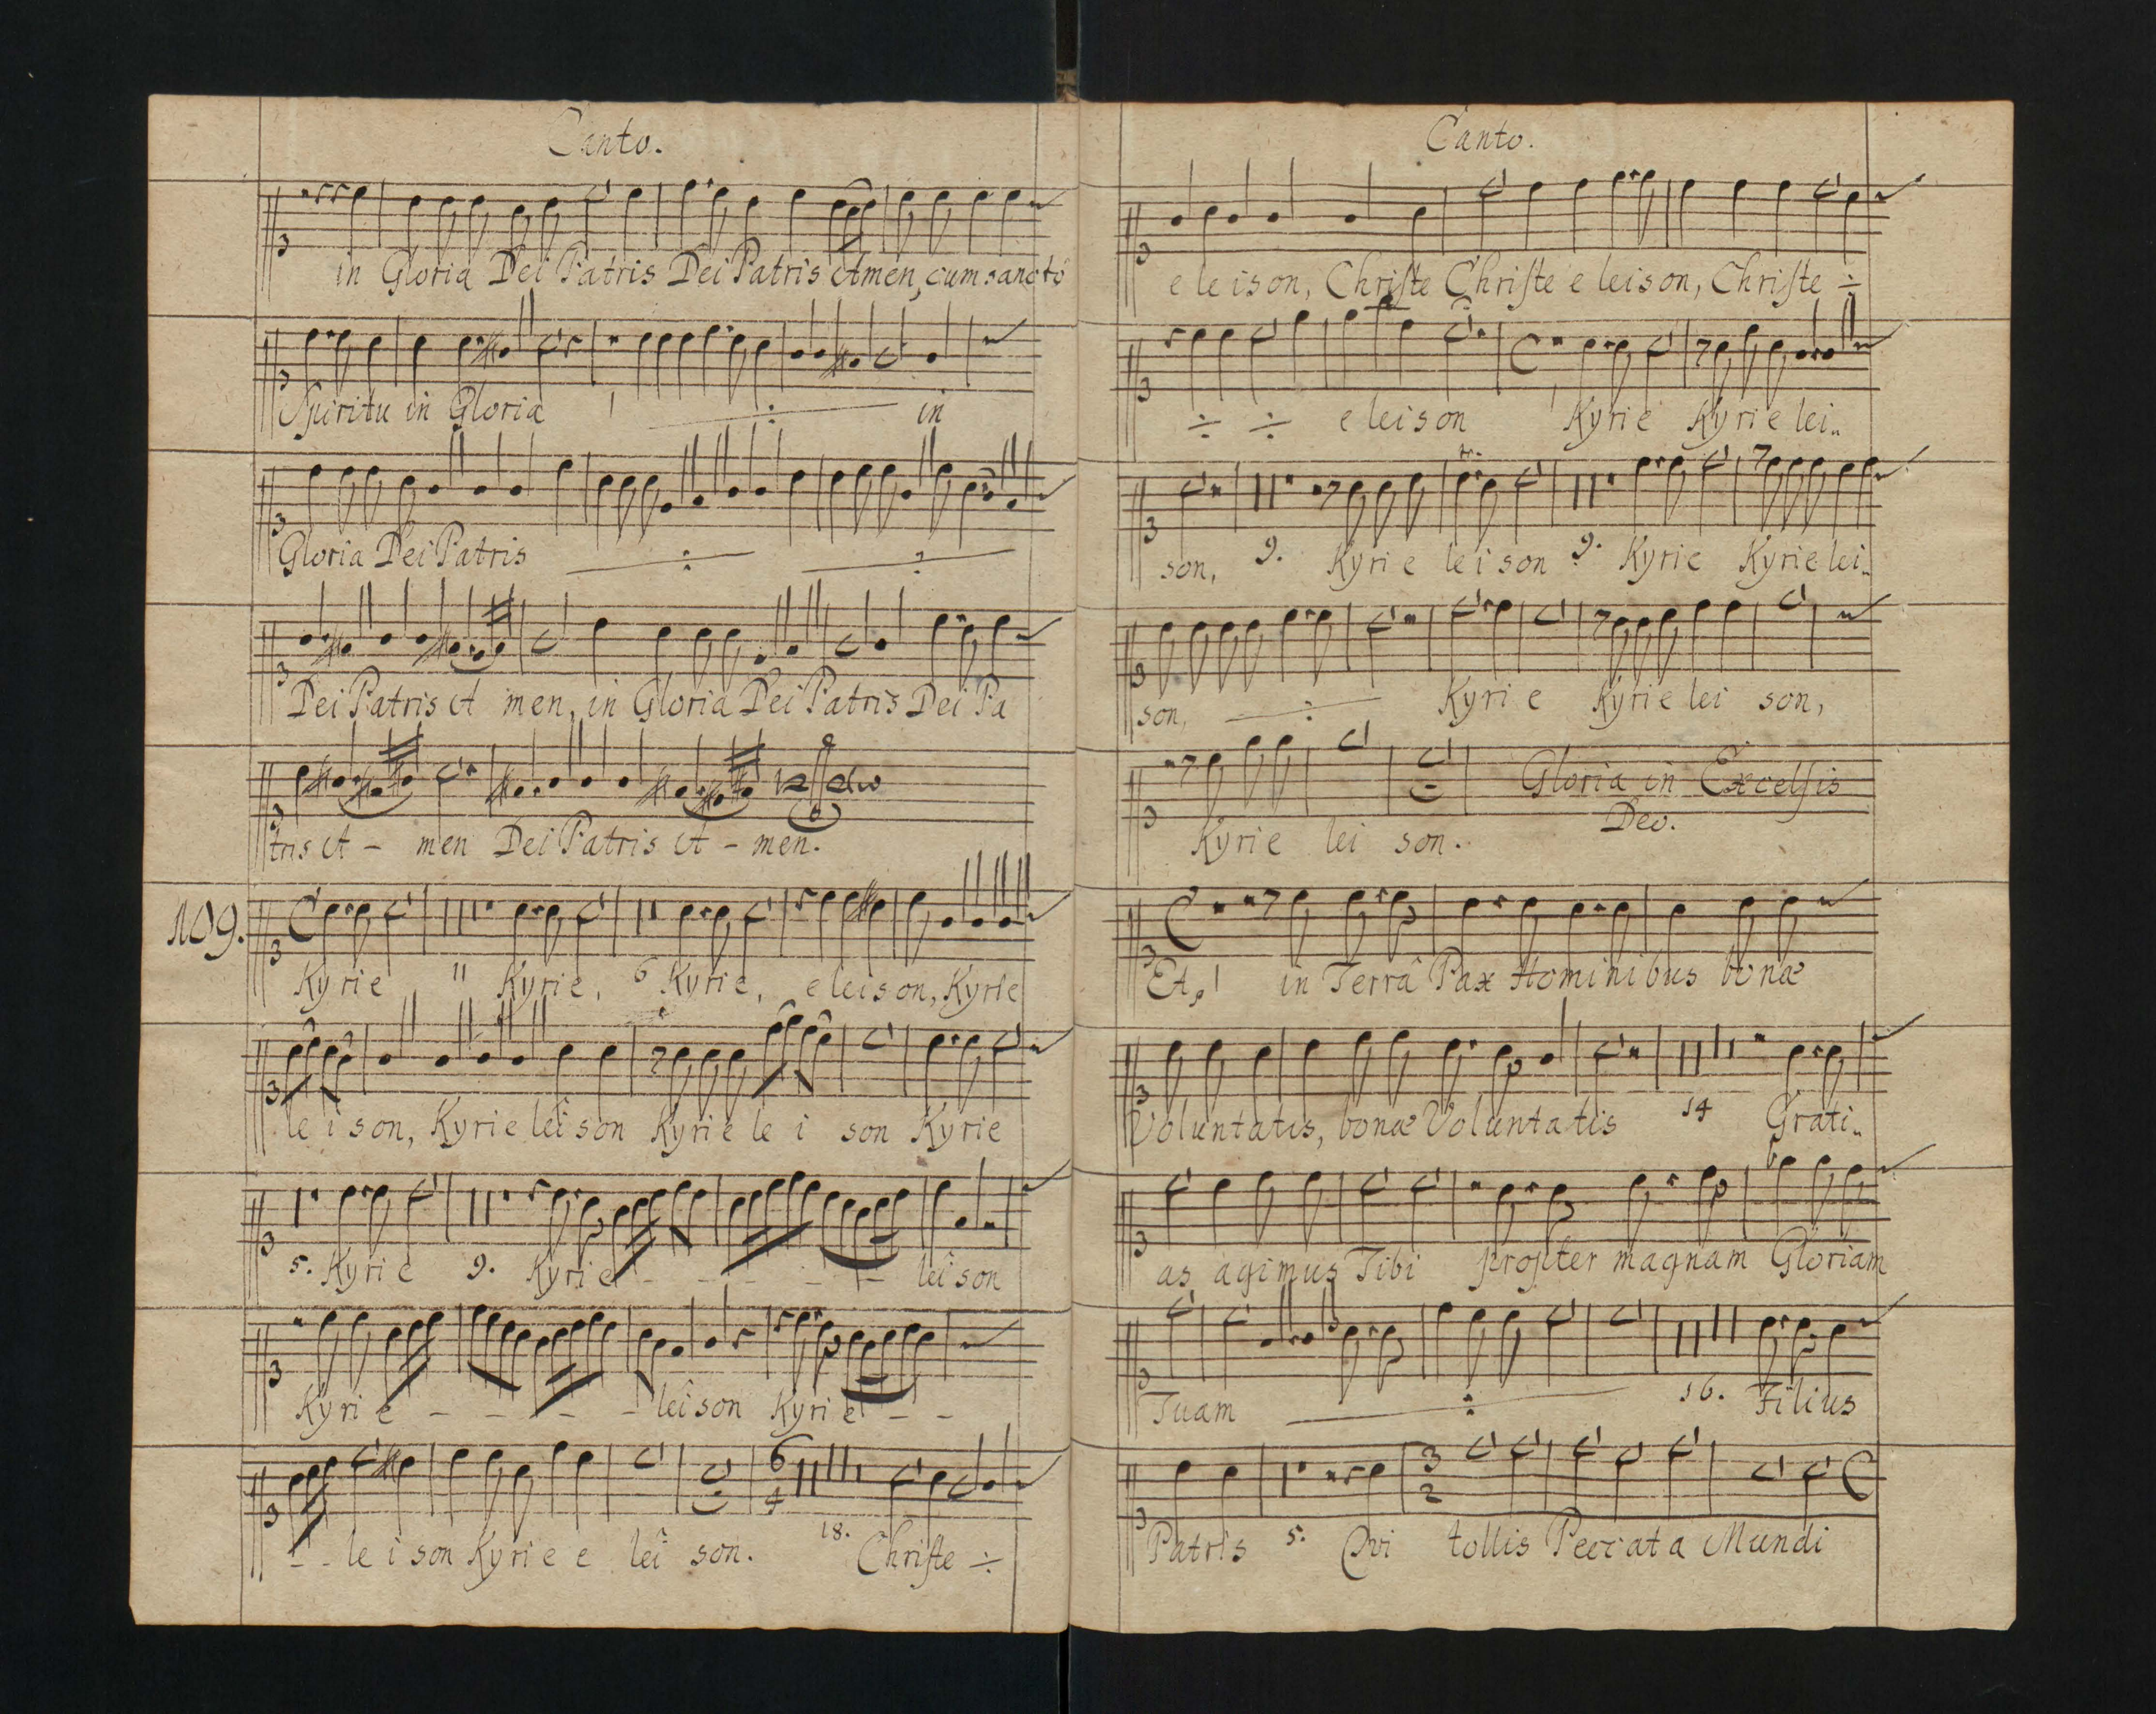 Canto.
in Gloria Dei Patris Dei Patris Amen, cum sancto
Spiritu in Gloria ÷ in
Gloria Dei Patris ÷ ÷
Dei Patris A men, in Gloria Dei Patris Dei Pa
tris A - men Dei Patris A - men.
109.
Kyrie 11 Kyrie, 6 Kyrie, eleison, Kyrie
le i son, Kyrie leison Kyrie le i son Kyrie
5. Kyrie 9. Kyrie - - - - - leison
Kyrie - - - - leison Kyrie - -
6
4
18.
- - le i son Kyrie e lei son. Christe ÷
Canto.
e le ison, Christe Christe e leison, Christe ÷
÷ ÷ e leison Kyrie Kyrie lei..
tr.
son, 9. Kyrie leison 9. Kyrie Kyrie lei..
son, ÷ Kyrie Kyrie lei son,
Gloria in Excelsis
Deo.
Kyrie lei son.
Et, in Terrâ Pax Hominibus bonæ
Voluntatis, bonæ Voluntatis 14 Grati..
as agimus Tibi propter magnam Gloriam
Tuam ÷ 16. Filius
3
2
Patris 5. Qvi tollis Peccata Mundi